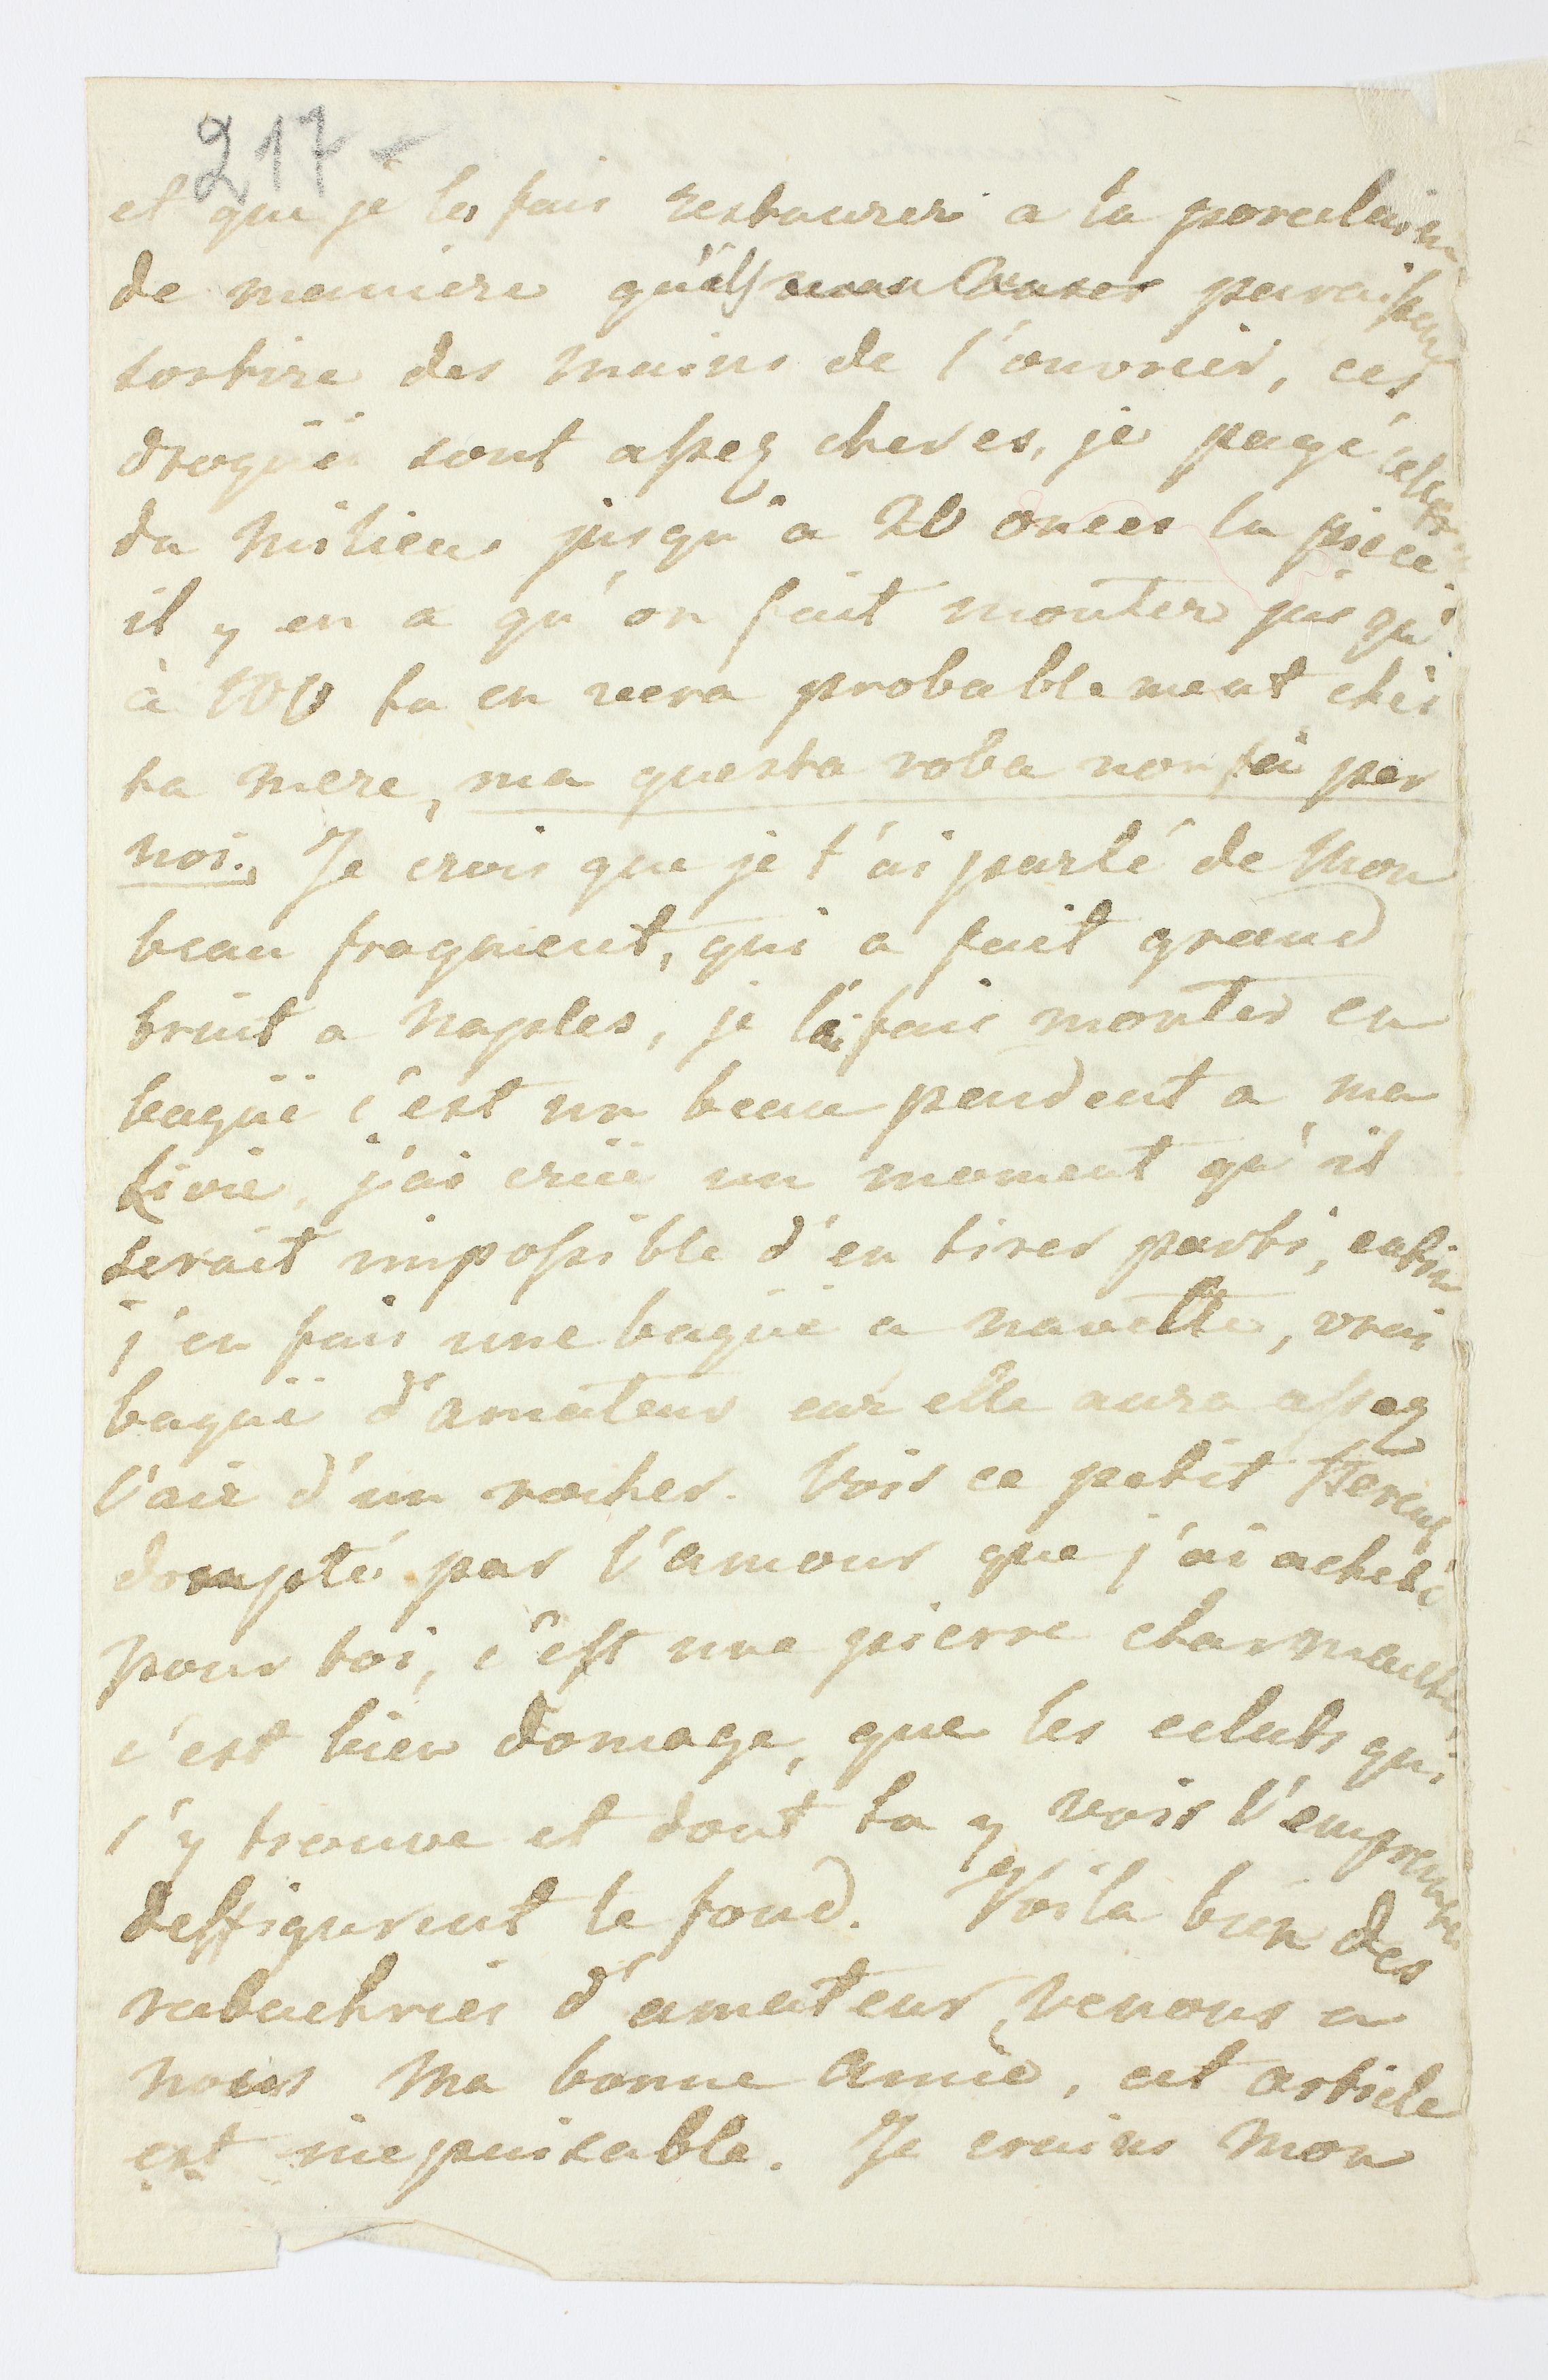 217-
et que je les fais restaurer a la porcelaine
de maniere qu'ils paraissent
sortire des mains de l'ouvrier, ces
drogüe sont assez cheres, je page celles
du milieu jusqu'a 20 onces la piece
il y en a qu'on fait monter jusqu'
à 100 tu en veera probablement chès
ta mere, ma questa roba non fà per
noi. Je crois que je t'ai parlé de Mon
beau fragment, qui a fait grand
bruit a Naples, je l'ai fais monter en
bagüe c'est un beau pendent a ma
Livie, j'ai crüe un moment qu'il
serait impossible d'en tirer parti, enfin
j'en fais une bagüe a navette, vrai
bagüe d'amateur car elle aura assez
l'air d'un rocher. Vois ce petit Hercul
dompté par l'amour que j'ai acheté
pour toi, c'est une pierre charmante,
c'est bien domage, que les eclats qui
s'y trouve et dont tu y vois l'empreinte
deffigurent le fond. Voila bien des
rabachries d'amateur, venons a
nous Ma bonne Amie, cet article
est inepuisable. Je crains Mon